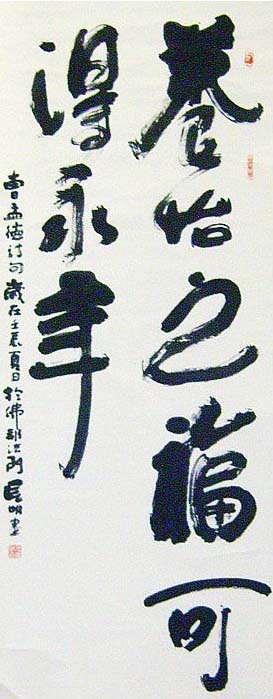 養怡之福可
得永年
曹孟德詩句歲在壬辰夏日於佛